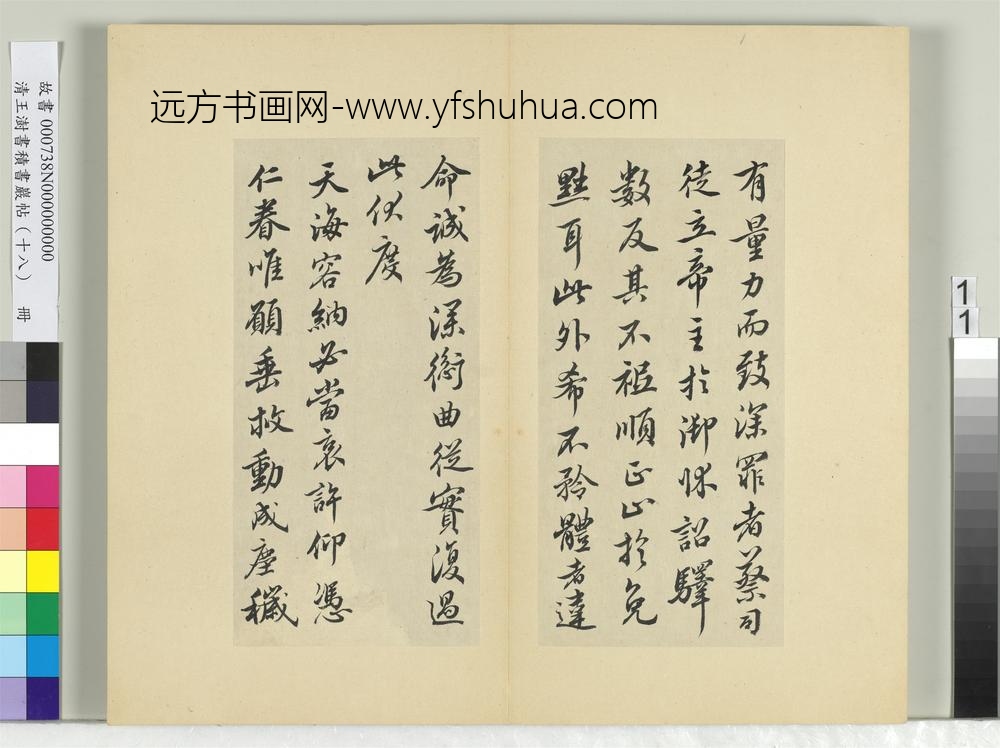 远方书画网-www.yfshuhua.com
故書 000738N000000000
清王澍書積書巖帖（十八） 冊
有量力而致深罪者蔡司
徒立帝主於御床詔驛
數反其不祗順正止於免
黜耳此外希不矜體者達
命誠為深衡曲從實復過
此伏度
天海容納必當哀許仰憑
仁眷唯願垂救動成塵穢
1
1